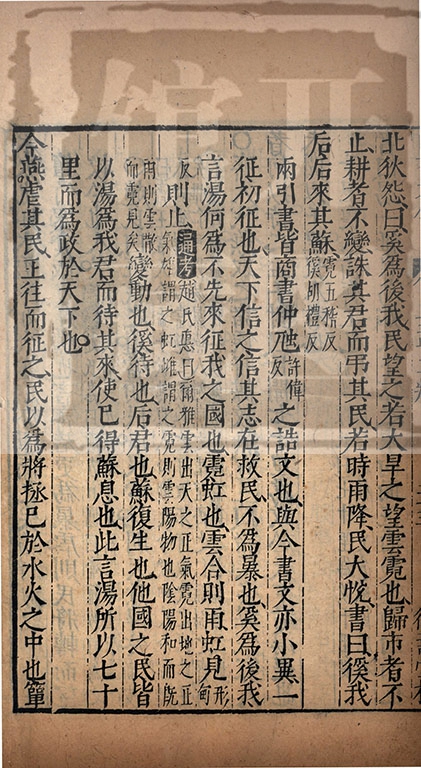 北狄怨曰奚爲後我民望之若大旱之望雲霓也歸市者不
止耕者不變誅其君而弔其民若時雨降民大悅書曰徯我
后后來其蘇霓五稽反徯胡禮反
兩引書皆商書仲虺許偉反之誥文也與今書文亦小異一
征初征也天下信之信其志在救民不爲暴也奚爲後我
言湯何爲不先來征我之國也霓虹也雲合則雨虹見形甸
反則止通考趙氏悳曰爾雅雲出天之正氣霓出地之正氣雄謂之虹雌謂之霓則雲陽物也陰陽和而旣
雨則雲散而霓見矣變動也徯待也后君也蘇復生也他國之民皆
以湯爲我君而待其來使已得蘇息也此言湯所以七十
里而爲政於天下也
今燕虐其民王往而征之民以爲將拯已於水火之中也簞